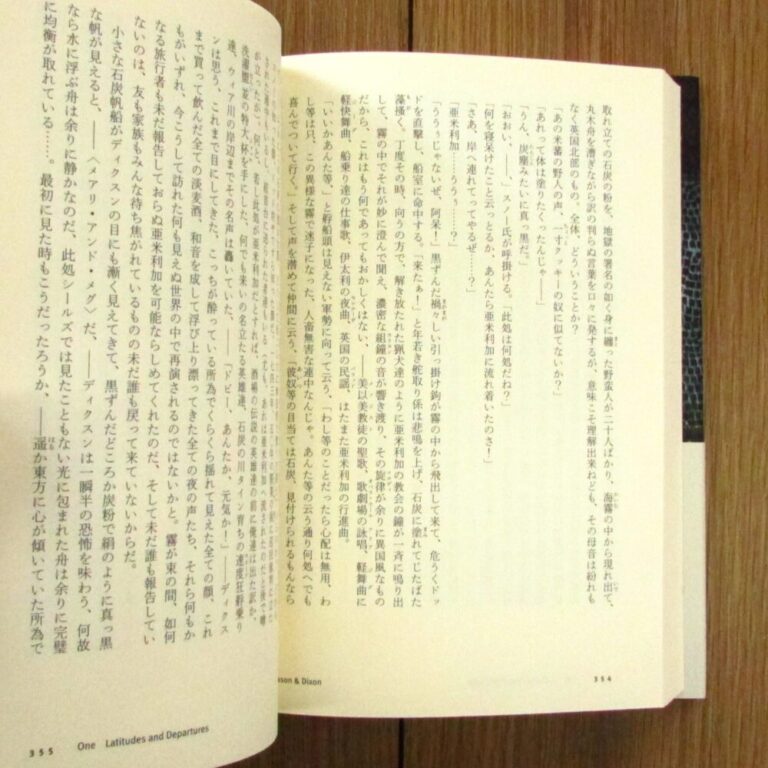 取れ立ての石炭の粉を、地獄の署名の如く身に纏った野蛮人が二十人ばかり、海霧の中から現れ出て、
丸木舟を漕ぎながら訳の判らぬ言葉を口々に発するが、意味こそ理解出来ねども、その母音は紛れも
なく英国北部のもの。全体、どういうことか?
「あの米蕃の野人の声、一寸クッキーの奴に似てないか?」
「あれって体は塗りたくったんじゃ――」
「うん、炭塵みたいに真っ黒だ。」
「おおい、――、」スノー氏が呼掛ける。「此処は何処だね?」
「何を寝呆けたこと云っとるか、あんたら亜米利加に流れ着いたのさ!」
「さあ、岸へ連れてってやるぜ……?」
亜米利加……ううぅ……?
「ううぅじゃないぜ、阿呆!」黒ずんだ禍々しい引っ掛け鉤が霧の中から飛出して来て、危うくドッ
ドを直撃し、船室に命中する。「来たぁ!」と年若き舵取り係は悲鳴を上げ、石炭に塗れてじたばた
藻掻く、丁度その時、向うの方で、解き放たれた猟犬達のように亜米利加の教会の鐘が一斉に鳴り出
して、霧の中でそれが妙に澄んで聞え、濃密な組鐘の音が響き渡り、その旋律が余りに異国風なもの
だから、これはもう何であってもおかしくはない、――美以美教徒の聖歌、歌劇場の詠唱、軽舞曲に
軽快舞曲、船乗り達の仕事歌、伊太利の夜曲、英国の民謡、はたまた亜米利加の行進曲。
「いいかあんた等」と艀船頭は見えない軍勢に向って云う、「わし等のことだったら心配は無用、わ
し等は只、この異様な霧で迷子になった、人畜無害な連中なんじゃ。あんた等の云う通り何処へでも
喜んでついて行く。」そして声を潜めて仲間に云う、「彼奴等の目当ては石炭、見付けられるもんなら
354
ason & Dixon
が立ったが)、何と、若し此処が亜米利加だとすれば、酒場の伝説の英雄達の前に俺達は出た訳か、
洗濯盥並の特大杯を手にした、何でも来いの名立たる英雄達、石炭の川タイン育ちの速度狂艀乗り
達、ウィア川の岸辺までその名声は轟いていた、――「ドビー、あんたか、元気か!」――ディクス
ンは思う、これまで目にしてきた、こっちが酔っている所為でくらくら揺れて見えた全ての顔、これ
まで買って飲んだ全ての淡麦酒、和音を成して浮び上り漂ってきた全ての夜の声たち、それら何もか
もがいずれ、今こうして訪れた何も見えぬ世界の中で再演されるのではないかと。霧が束の間、如何
なる旅行者も未だ報告しておらぬ亜米利加を可能ならしめてくれたのだ、そして未だ誰も報告してい
ないのは、友も家族もみんな待ち焦がれているものの未だ誰も戻って来ていないからだ。
小さな石炭帆船がディクスンの目にも漸く見えてきて、黒ずんだどころか炭粉で絹のように真っ黒
な帆が見えると、――〈メアリ・アンド・メグ〉だ、――ディクスンは一瞬半の恐怖を味わう、何故
なら水に浮ぶ舟は余りに静かなのだ、此処シールズでは見たこともない光に包まれた舟は余りに完璧
に均衡が取れている……。最初に見た時もこうだったろうか、――遥か東方に心が傾いていた所為で
355 One Latitudes and Departures